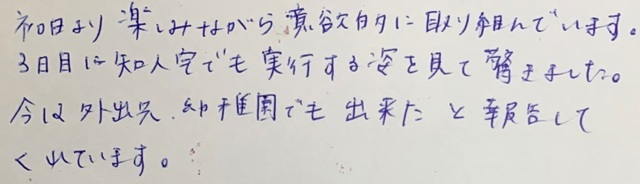 初日より楽しみながら意欲的に取り組んでいます。
3日目に知人宅でも実行する姿を見て驚きました。
今は外出先、幼稚園でも出来たと報告して
くれています。